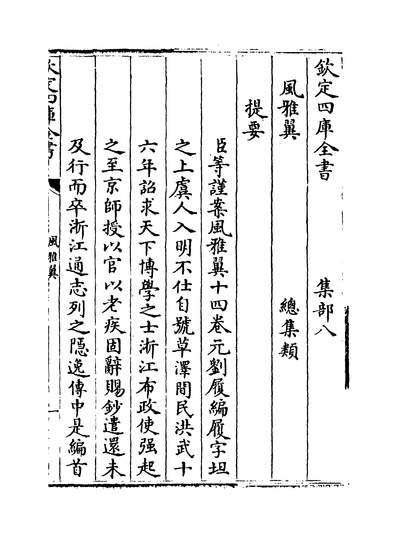 欽定四庫全書 集部八
風雅翼 總集類
提要
臣等謹案風雅翼十四卷元劉履編履字坦
之上虞人入明不仕自號草澤間民洪武十
六年詔求天下博學之士浙江布政使强起
之至京師授以官以老疾固辭賜鈔遣還未
及行而卒浙江通志列之隱逸傳中是編首
欽定四庫全書
風雅翼
一